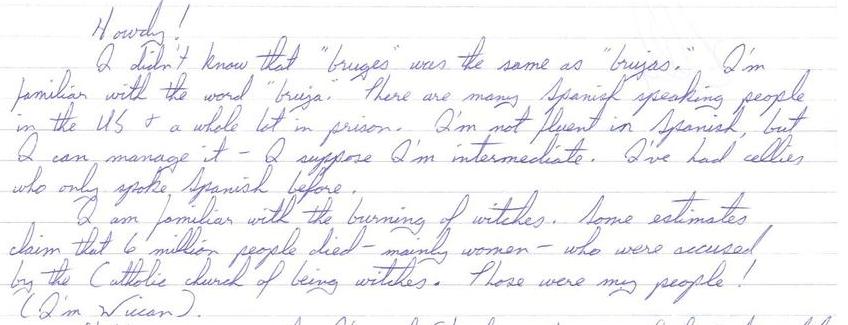 Howdy!
I didn't know that "bruges" was the same as "brujas." I'm
familiar with the word "bruja." There are many Spanish speaking people
in the US & a whole lot in prison. I'm not fluent in Spanish, but
I can manage it - I suppose I'm intermediate. I've had cellies
who only spoke Spanish before.
I am familiar with the burning of witches. Some estimates
claim that 6 million people died - mainly women - who were accused
by the Catholic church of being witches. Those were my people!
(I'm Wiccan).